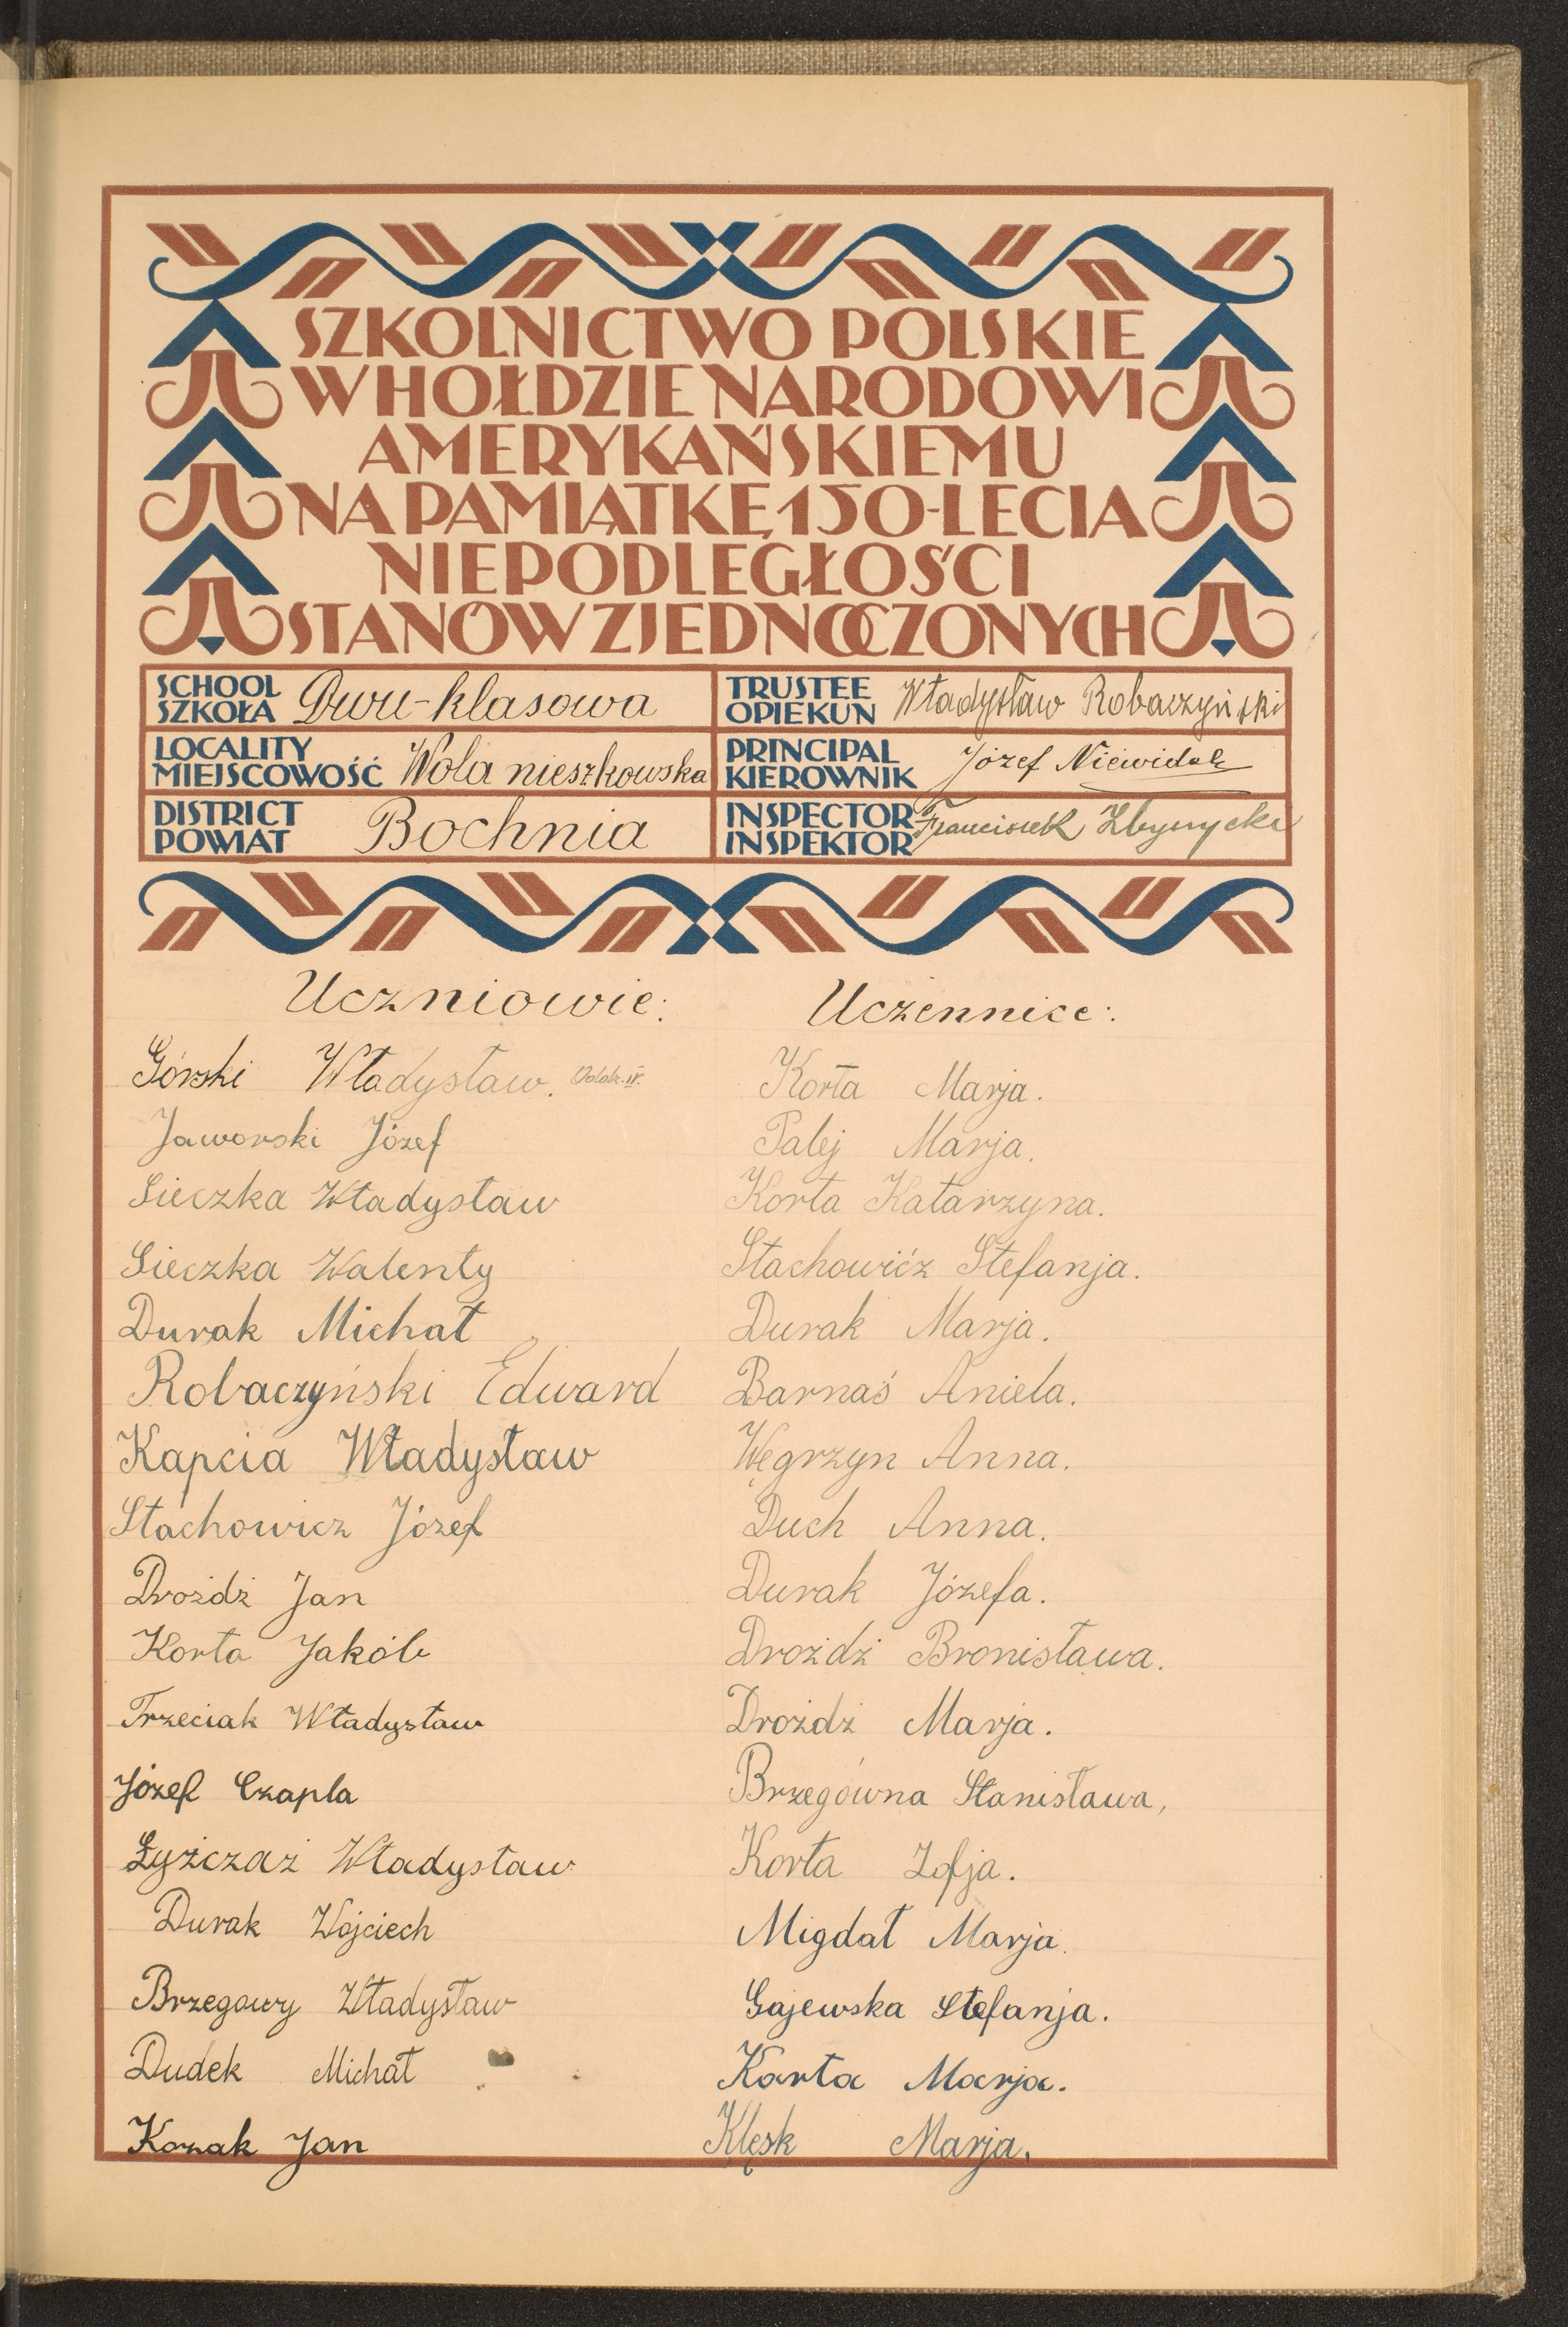 SZKOLNICTWO POLSKIE
W HOŁDZIE NARODOWI
AMERYKAŃSKIEMU
NA PAMIĄTKĘ 150-LECIA
NIEPODLEGŁOŚCI
STANÓW ZJEDNOCZONYCH
SCHOOL
SZKOŁA
Dwu-klasowa
TRUSTEE
OPIEKUN
Władysław Robaczyński
LOCALITY
MIEJSCOWOŚĆ
Wola nieszkowska
PRINCIPAL
KIEROWNIK
Józef Niewidok
DISTRICT
POWIAT
Bochnia
INSPECTOR
INSPEKTOR
Franciszek
Uczniowie:
Górski Władysław.
Jaworski Józef
Sieczka Władysław
Sieczka Walenty
Durak Michał
Robaczyński Edward
Kapcia Władysław
Stachowicz Józef
Drożdż Jan
Korta Jakób
Trzeciak Władysław
Józef Czapla
Łyżczaż Władysław
Durak Wojciech
Brzegowy Władysław
Dudek Michał
Kozak Jan
Uczennice:
Korta Marja.
Palej Marja.
Korta Katarzyna.
Stachowicz Stefanja.
Durak Marja.
Barnaś Aniela.
Węgrzyn Anna.
Duch Anna.
Durak Józefa.
Drożdż Bronisława.
Drożdż Marja.
Brzegówna Stanisława,
Korta Zofja.
Migdał Marja.
Gajewska Stefanja.
Karta Marja.
Klęsk Marja.